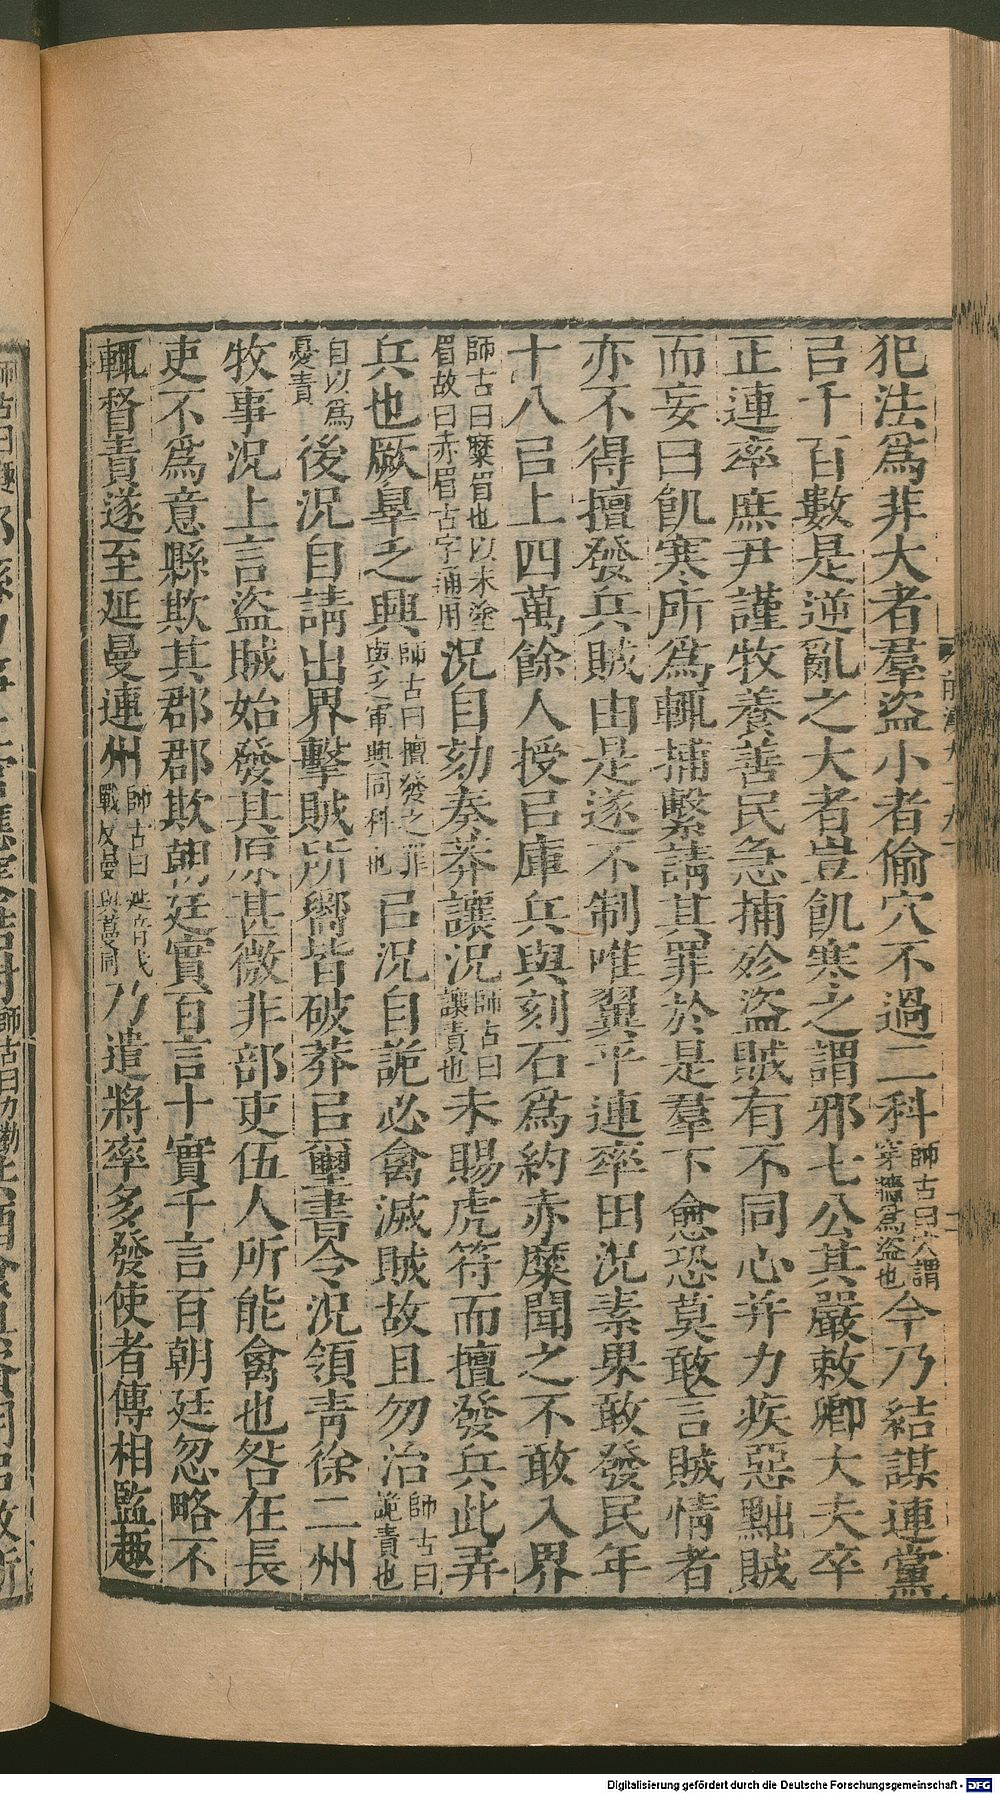 犯法爲非大者羣盜小者偷穴不過二科師古曰穴謂穿牆爲盜也今乃結謀連黨
㠯千百數是逆亂之大者豈飢寒之謂邪七公其嚴敕卿大夫卒
正連率庶尹謹牧養善民急捕殄盜賊有不同心并力疾惡黜賊
而妄曰飢寒所爲輒捕繫請其罪於是羣下愈恐莫敢言賊情者
亦不得擅發兵賊由是遂不制唯翼平連率田況素果敢發民年
十八㠯上四萬餘人授㠯庫兵與刻石爲約赤糜聞之不敢入界
師古曰糜眉也以朱塗眉故曰赤眉古字通用況自劾奏莽讓況師古曰讓責也未賜虎符而擅發兵此弄
兵也厥辠乏興師古曰擅發之罪與乏軍興同科也㠯況自詭必禽滅賊故且勿治師古曰詭責也
自以爲憂責後況自請出界擊賊所嚮皆破莽㠯璽書令況領青徐二州
牧事況上言盜賊始發其原甚微非部吏伍人所能禽也咎在長
吏不爲意縣欺其郡郡欺朝廷實百言十實千言百朝廷忽略不
輒督責遂至延曼連州師古曰延音弋戰反曼與蔓同乃遣將率多發使者傳相監趣
Digitalisierung gefördert durch die Deutsche Forschungsgemeinschaft - DFG